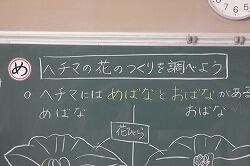 め
ヘチマの花のつくりを調べよう
○ ヘチマには めばなと おばな がある
めばな おばな
花びら